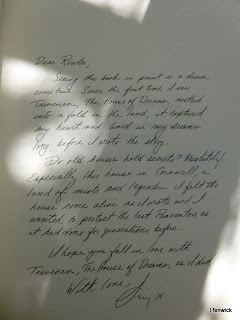 Dear Reader,
Seeing this book in print is a dream
come true. Since the first time I saw
Trevenen, The House of Dreams, nestled
into a fold in the land, it captured
my heart and lived in my dreams
long before I wrote the story.
Do old houses hold secrets? Absolutely!
Especially this house in Cornwall, a
land of mists and legends. I felt the
house come alive as I wrote and I
wanted to protect the last Penventon as
it had done for generations before.
I hope you fall in love with
Trevenen, The House of Dreams, as I did.
With love,
x
l fenwick